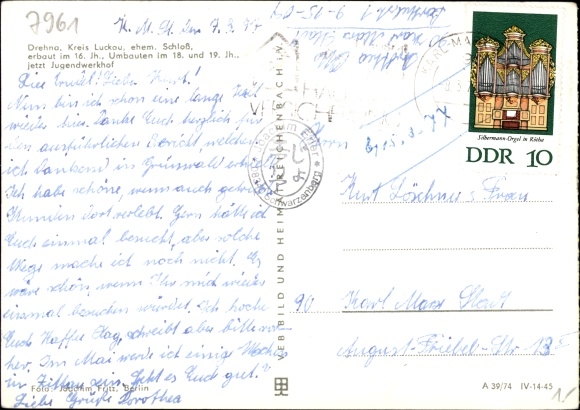 7961
K. M. St. den 7. 3. 77
Drehna, Kreis Luckau, ehem. Schloß,
erbaut im 16. Jh., Umbauten im 18. und 19. Jh.,
jetzt Jugendwerkhof
Liebe Trudel! Lieber Kurt!
Nun bin ich schon eine lange Zeit
wieder hier. Danke Euch herzlich für
den ausführlichen Bericht, welchen
ich dankend in Grünwald erhielt.
Ich habe schöne, wenn auch
Stunden dort verlebt. Gern hätte ich
Euch einmal besucht, aber solche
Wege mache ich noch nicht. Es
wäre schön, wenn Ihr mich wieder
einmal besuchen würdet. Ich koche
Euch Kaffee Hag, schreibt aber bitte vor-
her. Im Mai werde ich einige Wochen
in Zittau sein. Geht es Euch gut?
Liebe Grüße Dorothea
Foto: Joachim Fritz, Berlin
VEB BILD UND HEIMAT REICHENBACH I. V.
Schwarzenberg
KARL-MA
Silbermann-Orgel in Rötha
DDR 10
Kurt Löschner u. Frau
90 Karl Marx Stadt
August-Friebel-Str. 13
A 39/74 IV-14-45
1/